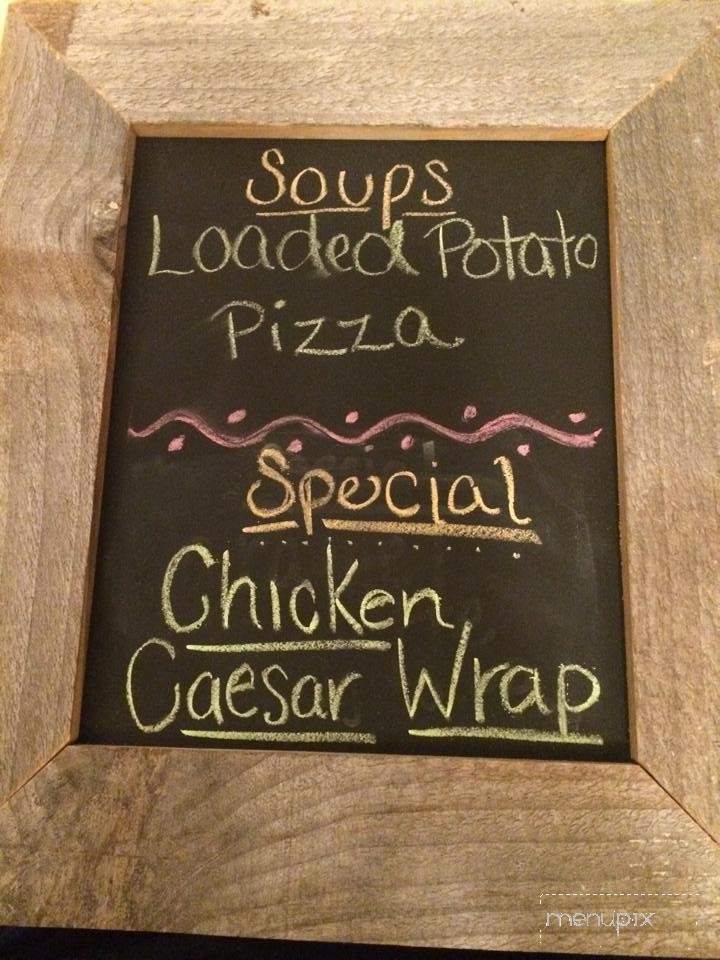 Soups
Loaded Potato
Pizza
Special
Chicken
Caesar Wrap
menupix